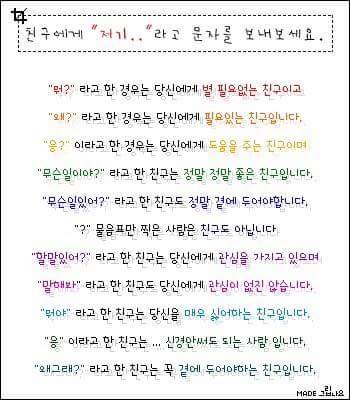 친구에게 "저기.." 라고 문자를 보내보세요.
"뭐?" 라고 한 경우는 당신에게 별 필요없는 친구이고
"왜?" 라고 한 경우는 당신에게 필요있는 친구입니다.
"응?" 이라고 한 경우는 당신에게 도움을 주는 친구이며
"무슨일이야?" 라고 한 친구는 정말 정말 좋은 친구입니다.
"무슨일있어?" 라고 한 친구도 정말 곁에 두어야합니다.
"?" 물음표만 찍은 사람은 친구도 아닙니다.
"할말있어?" 라고 한 친구는 당신에게 관심을 가지고 있으며
"말해봐" 라고 한 친구도 당신에게 관심이 없진 않습니다.
"뭐야" 라고 한 친구는 당신을 매우 싫어하는 친구입니다.
"응" 이라고 한 친구는 ... 신경안써도 되는 사람 입니다.
"왜그래?" 라고 한 친구는 꼭 곁에 두어야하는 친구입니다.
MADE